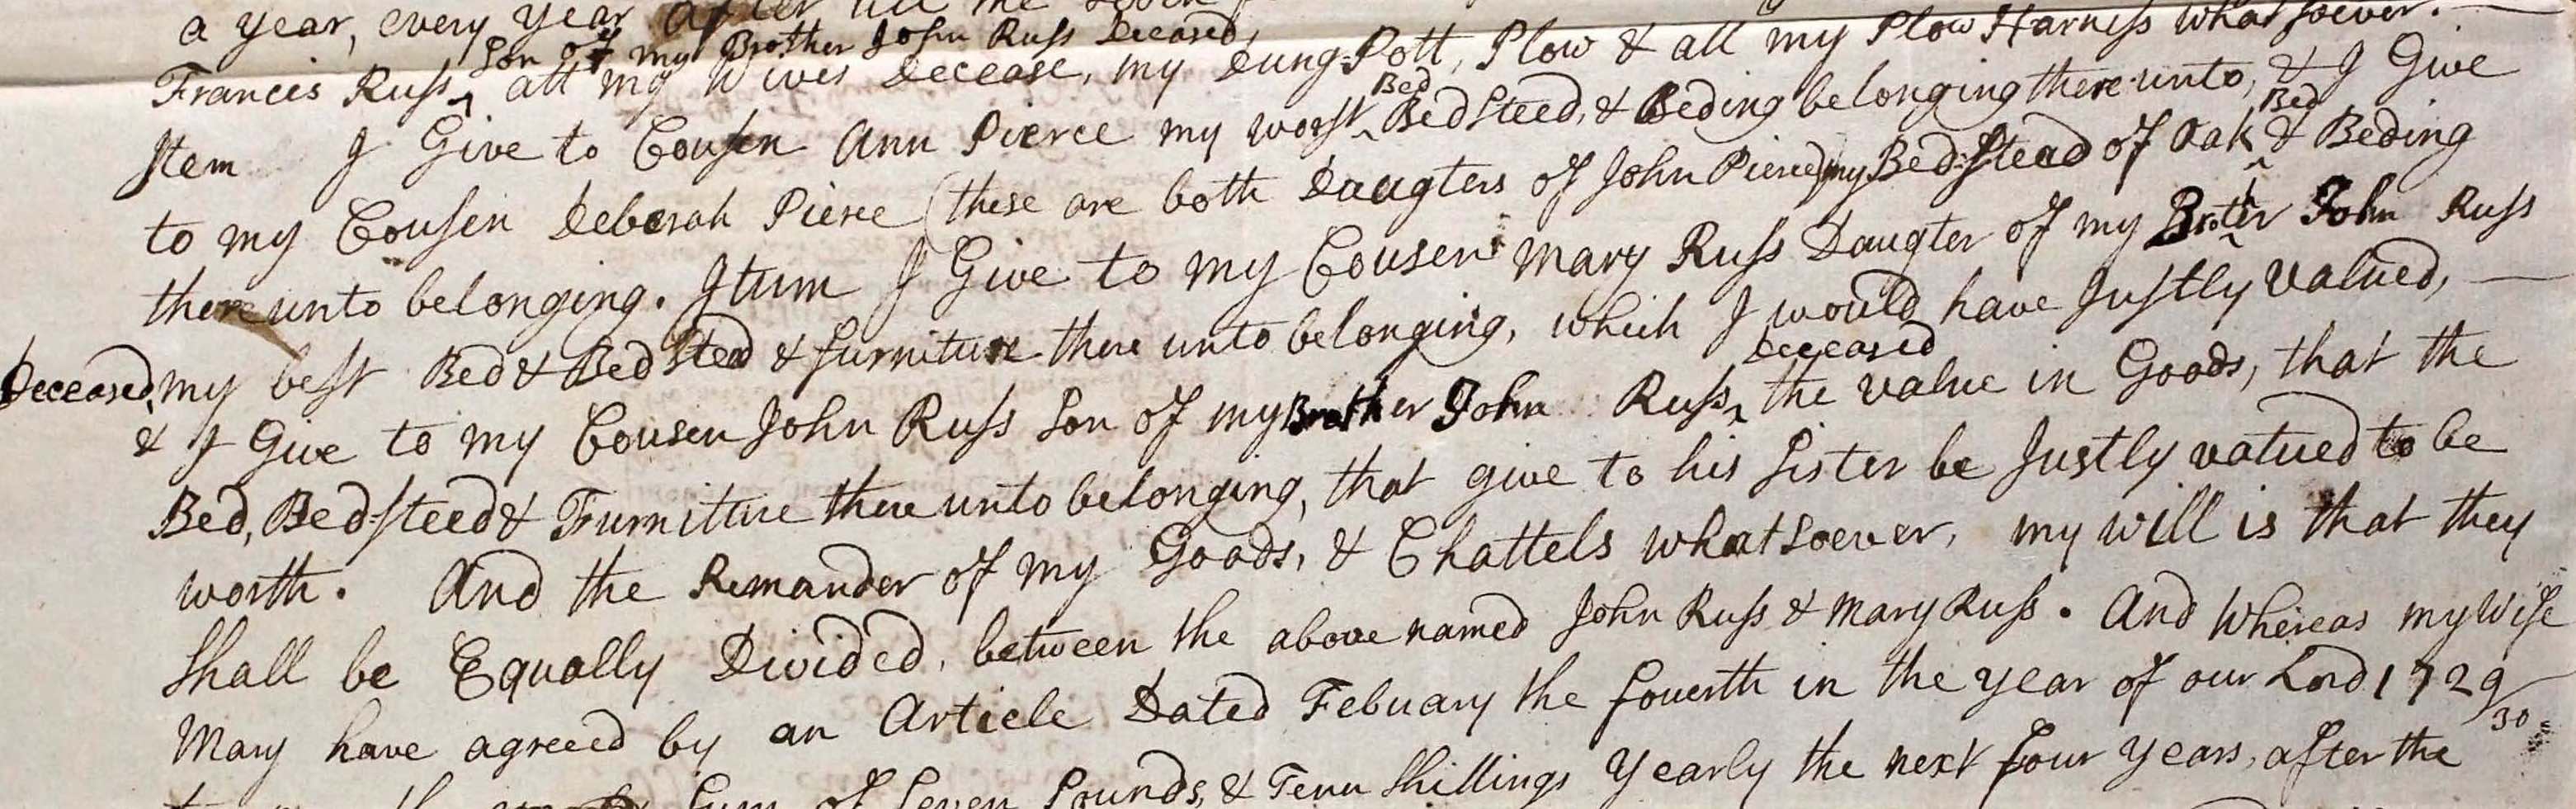 a year, every year after till the
Son of my Brother John Russ Deceased,
Francis Russ ^ att my Wives Decease, my Dung-Pott, Plow & all my Plow Harness whatsoever.
Bed
Item I Give to Cousen Ann Pierce my worst ^ Bedsteed, & Beding belonging there unto, & I Give
Bed
to my Cousen Deborah Pierce (these are both Daugters of John Pierce) my Bed-stead of Oak ^ & Beding
there unto belonging. Itum I Give to my Cousen Mary Russ Daugter of my Brother John Russ
Deceased, my best Bed & Bedstead & furniture there unto belonging, which I would have Justly valued,
Deceased
& I Give to my Cousen John Russ Son of my Brother John Russ ^ the value in Goods, that the
Bed, Bed-steed & Furniture there unto belonging, that give to his Sister be Justly valued to be
worth. And the Remander of my Goods, & Chattels whatsoever, my will is that they
Shall be Equally Divided, between the above named John Russ & Mary Russ. And Whereas my Wife
Mary have agreed by an Article Dated Febuary the fouerth in the year of our Lord 1729/30
Sum of Seven Pounds, & Tenn Shillings Yearly the next four years, after the